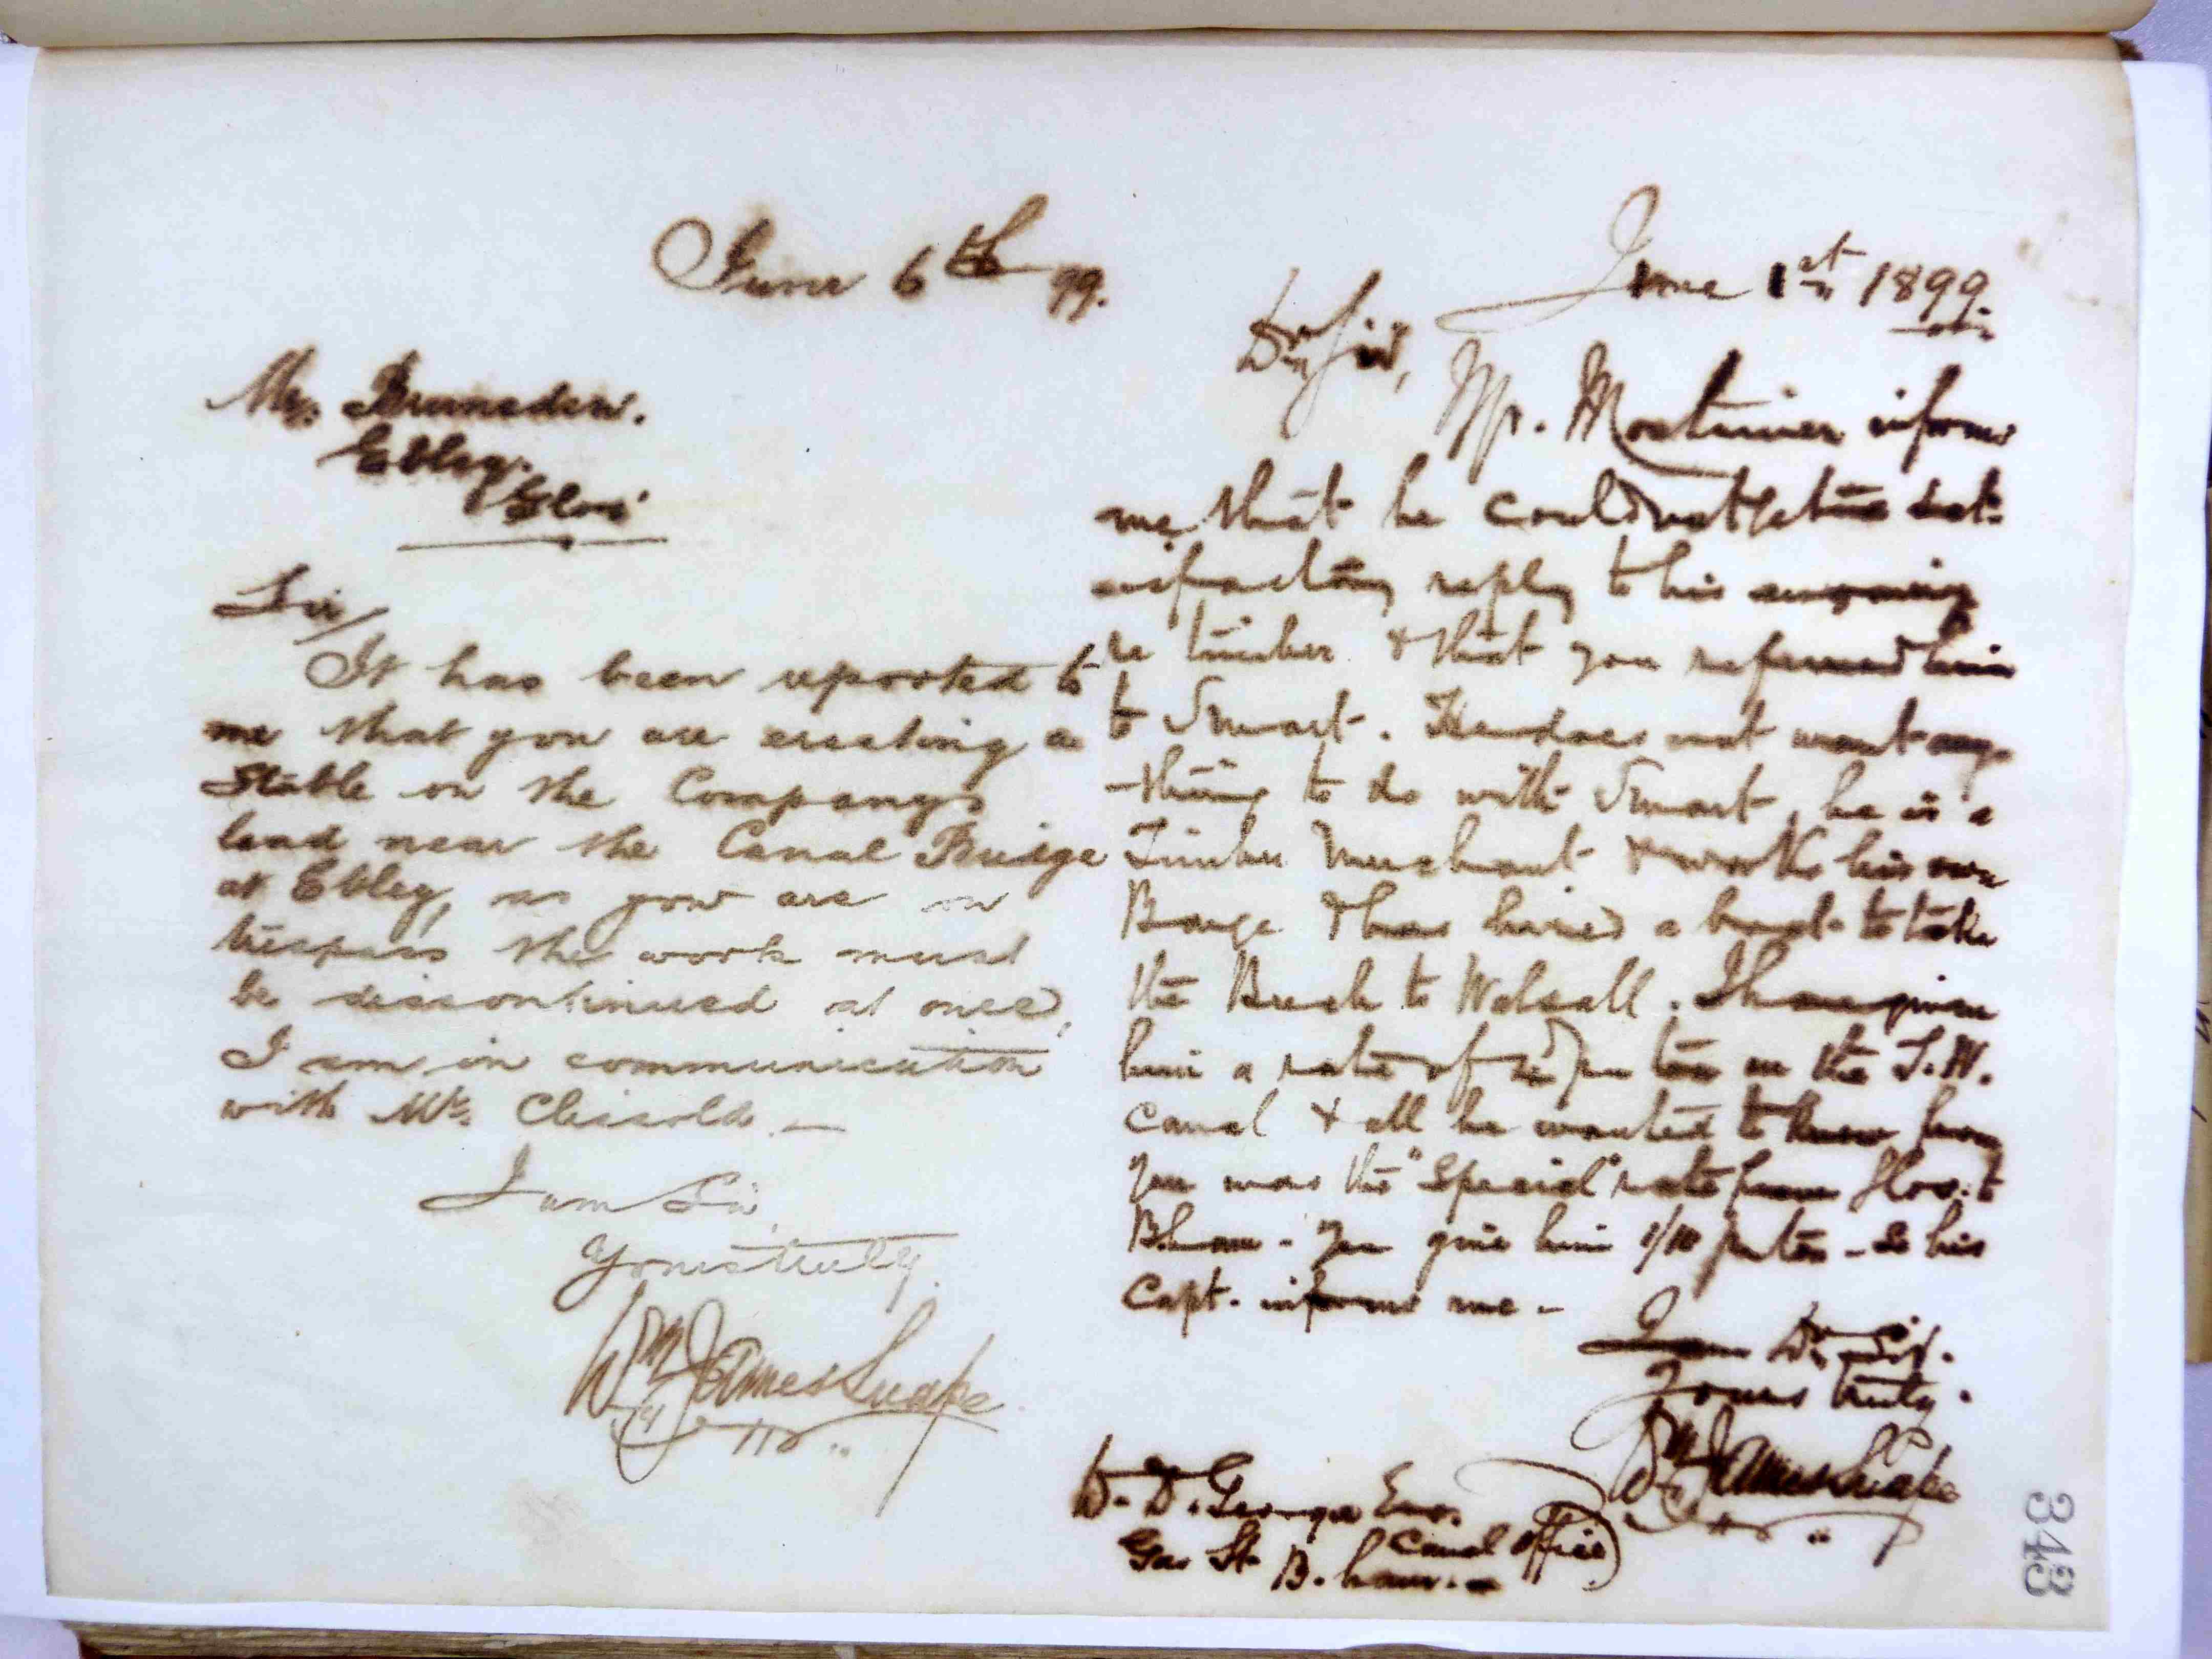 June 6th 99.
Mr. Brunsdon.
Ebley.
Glos'
Sir/
It has been reported to
me that you are erecting a
Stable on the Companys
land near the Canal Bridge
at Ebley, as you are on
trespass the work must
be discontinued at once,
I am in communication
with Mr. Clissold. —
I am Sir,
Yours truly.
Wm James Snape
June 1st 1899.
Dr Sir,
Mr. Mortimer informs
me that he could not get a sat-
isfactory reply to his enquiry
re timber & that you referred him
to Smart. He does not want any-
-thing to do with Smart, he is a
Timber Merchant & works his own
Barge & has hired a boat to take
the to Walsall. I have given
him a rate of per ton on the S.W.
Canal & all he wanted to know from
you was the "Special" rate from Glos. to
B.ham - You give him 1/10 per ton - so his
Capt. informs me -
I am Dr Sir.
Yours truly.
Wm James Snape
W. D. George Esq.
Canal Office
Gas St. B.ham. -
343